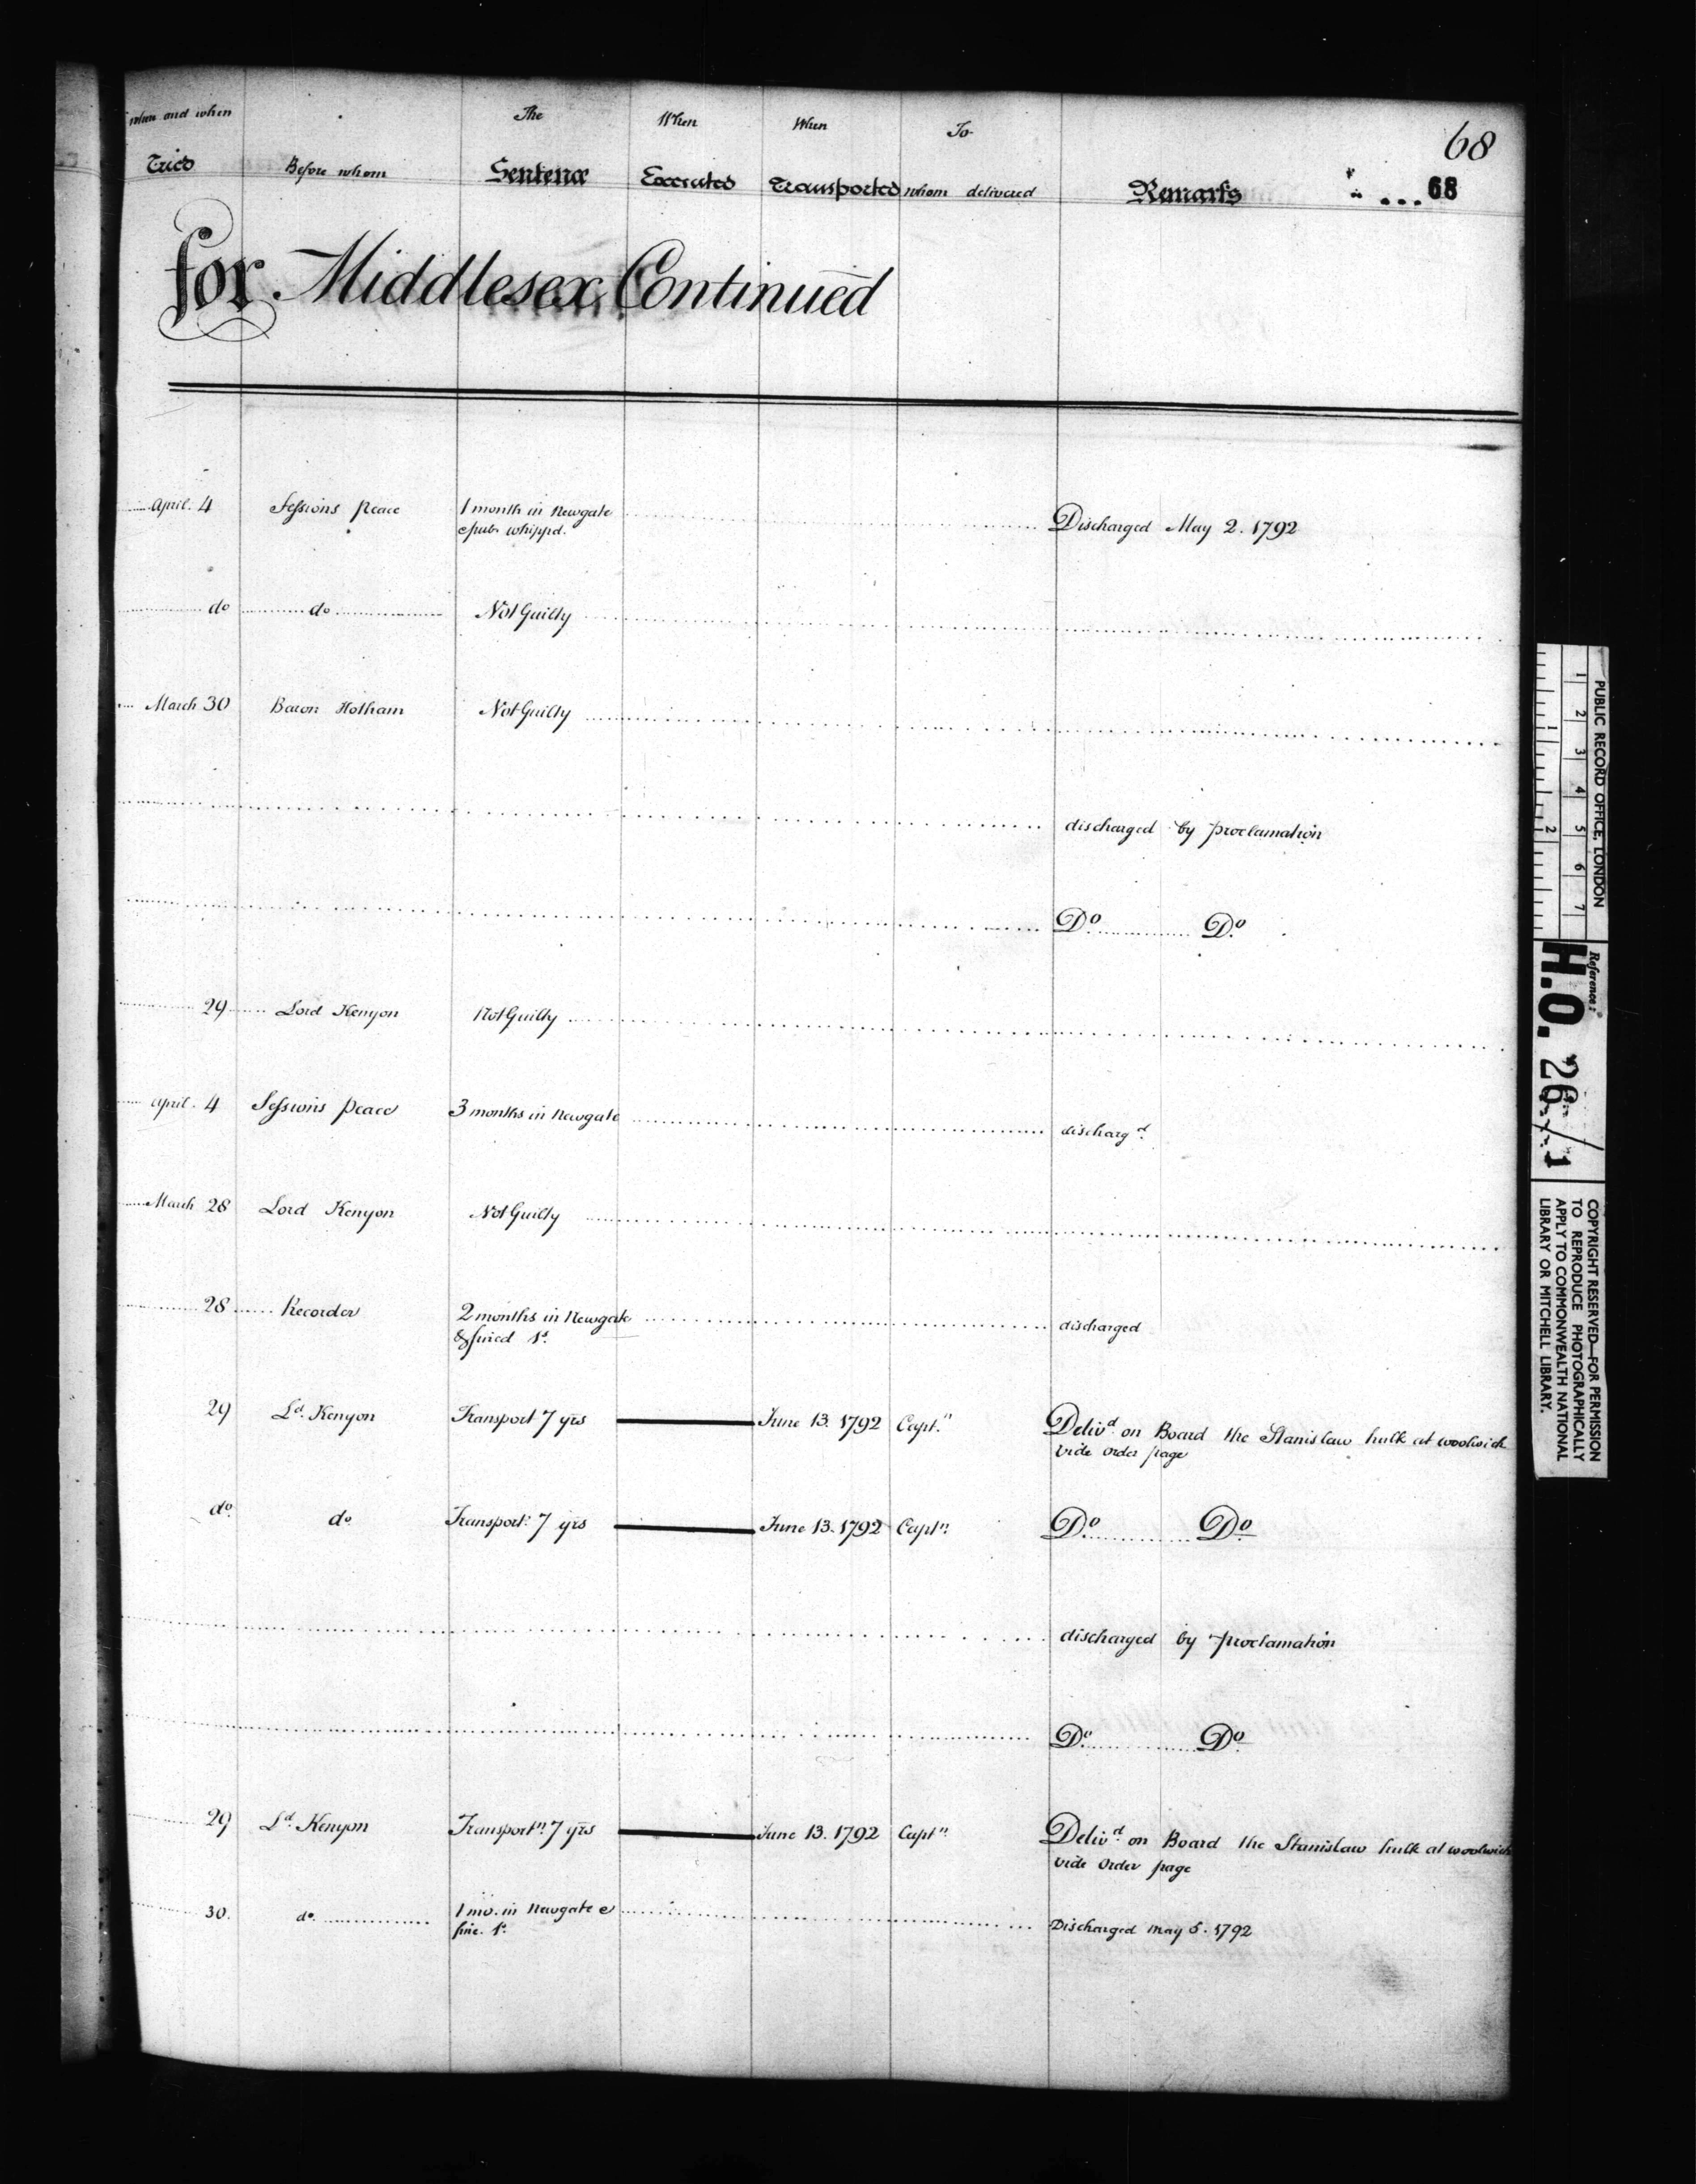 when and when The When When To 68
Tried Before whom Sentence Executed Transported whom delivered Remarks 68
for Middlesex Continued
April. 4 Sessions peace 1 month in Newgate Discharged May 2. 1792
& pub. whippd.
do do Not Guilty
March 30 Baron Hotham Not Guilty
discharged by proclamation
Do Do
29 Lord Kenyon Not Guilty
April. 4 Sessions peace 3 months in Newgate dischargd.
March 28 Lord Kenyon Not Guilty
28 Recorder 2 months in Newgate discharged
& fined 1s.
29 Ld. Kenyon Transport 7 yrs June 13. 1792 Captn Delivd. on Board the Stanislaw hulk at woolwich
vide order page
do. do Transport: 7 yrs June 13. 1792 Captn. Do Do
discharged by proclamation
Do. Do.
29 Ld. Kenyon Transportn. 7 yrs June 13. 1792 Captn. Delivd. on Board the Stanislaw hulk at woolwich
vide Order page
30. do. 1 mo. in Newgate & Discharged may 5. 1792
fine. 1s.
PUBLIC RECORD OFFICE, LONDON
1 2 3 4 5 6 7
1 2
Reference:
H.O. 26/1
COPYRIGHT RESERVED—FOR PERMISSION
TO REPRODUCE PHOTOGRAPHICALLY
APPLY TO COMMONWEALTH NATIONAL
LIBRARY OR MITCHELL LIBRARY.